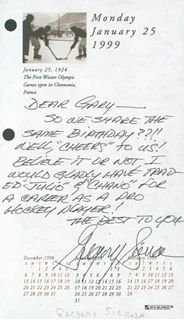 Monday
January 25
1999
January 25, 1924
The First Winter Olympic
Games open in Chamonix,
France
DEAR GARY—
SO WE SHARE THE
SAME BIRTHDAY??!!
WELL "CHEERS" TO US!
BELIEVE IT OR NOT I
WOULD GLADLY HAVE TRAD-
ED "JULIO" & "CHANO" FOR
A CAREER AS A PRO
HOCKEY PLAYER!
THE BEST TO YOU
Gregory Sierra
December 1998
February 1999
S M T W T F S
GREGORY SIERRA
AT-A-GLANCE